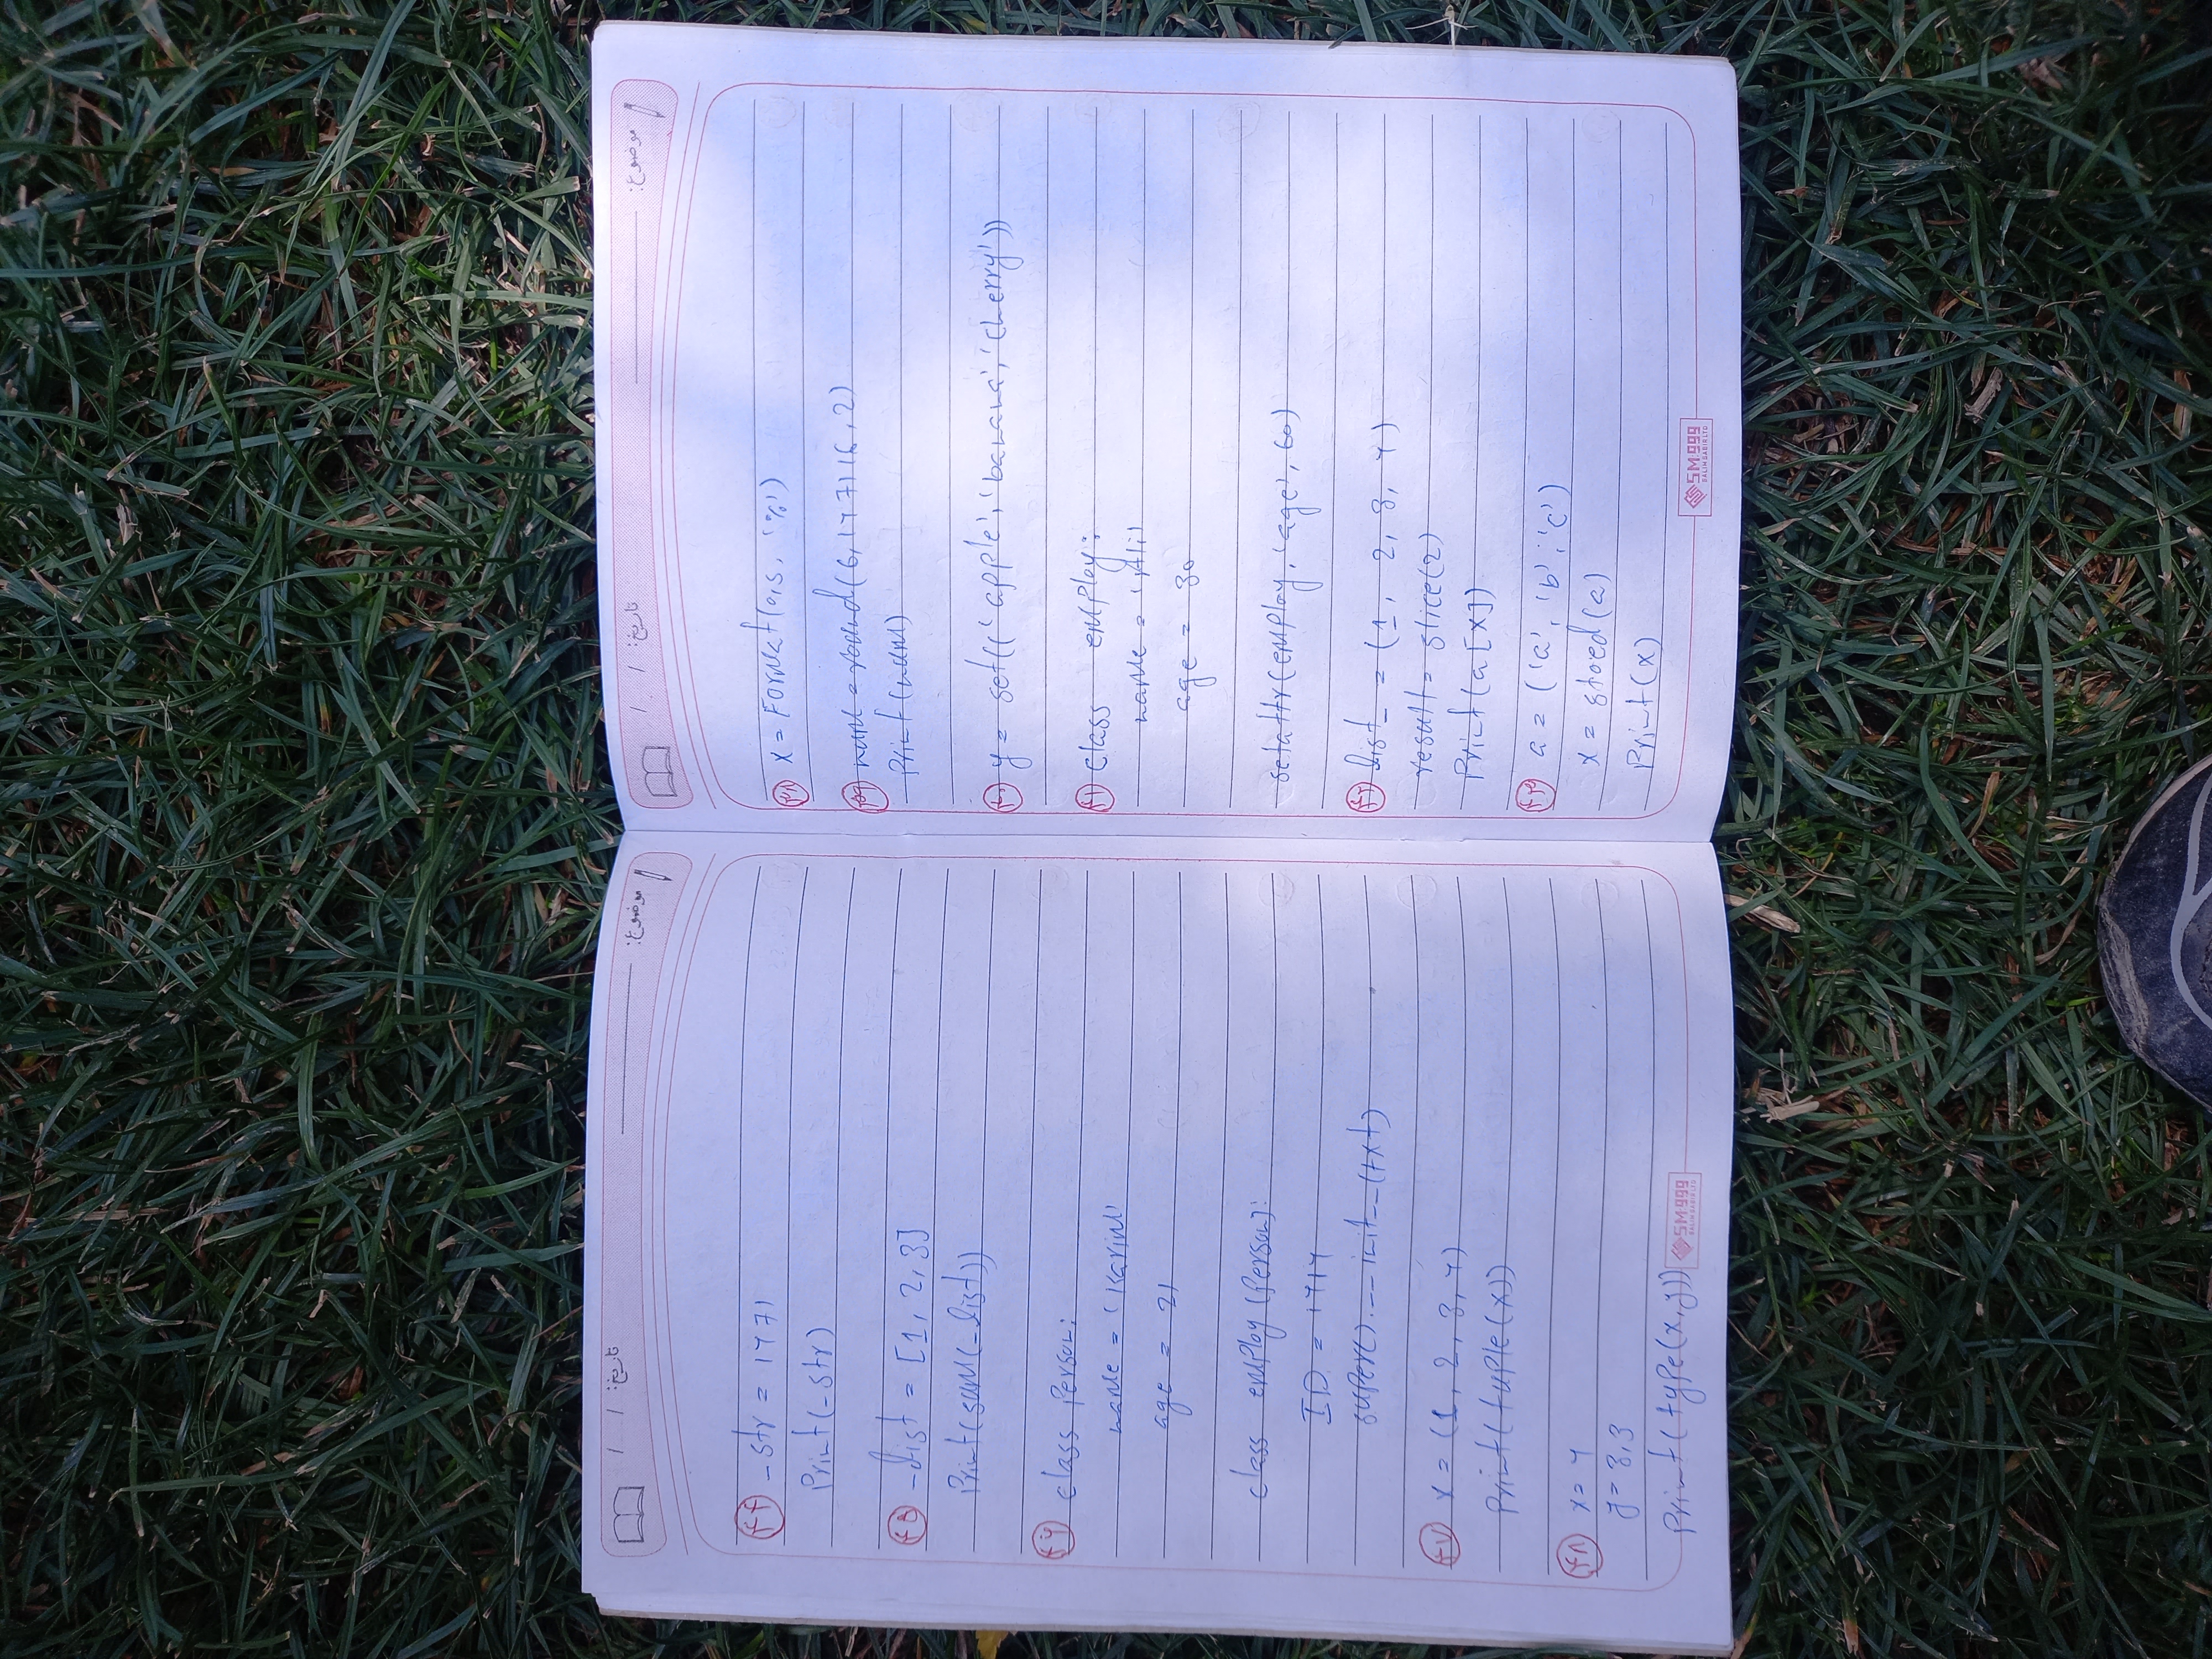 تاریخ: / /
موضوع:
۴۴ _str = 1471
Print(_str)
۴۵ _list = [1, 2, 3]
Print(sum(_list))
۴۶ class Person:
name = 'Karim'
age = 21
class employ(Person):
ID = 1414
super().__init__(txt)
۴۷ x = (1, 2, 3, 4)
Print(tuple(x))
۴۸ x = 4
y = 3,3
Print(type(x,y))
SM.999
SALIM SABIR LTD
تاریخ: / /
موضوع:
۳۸ x = Format(0,5, '%')
۳۹ num = round(6,147116, 2)
Print(num)
۴۰ y = set(('apple', 'banana', 'cherry'))
۴۱ class employ:
name = 'Ali'
age = 30
setattr(employ, 'age', 60)
۴۲ list_ = (1, 2, 3, 4)
result = slice(2)
Print(a[x])
۴۳ a = ('a', 'b', 'c')
x = stoed(a)
Print(x)
SM.999
SALIM SABIR LTD